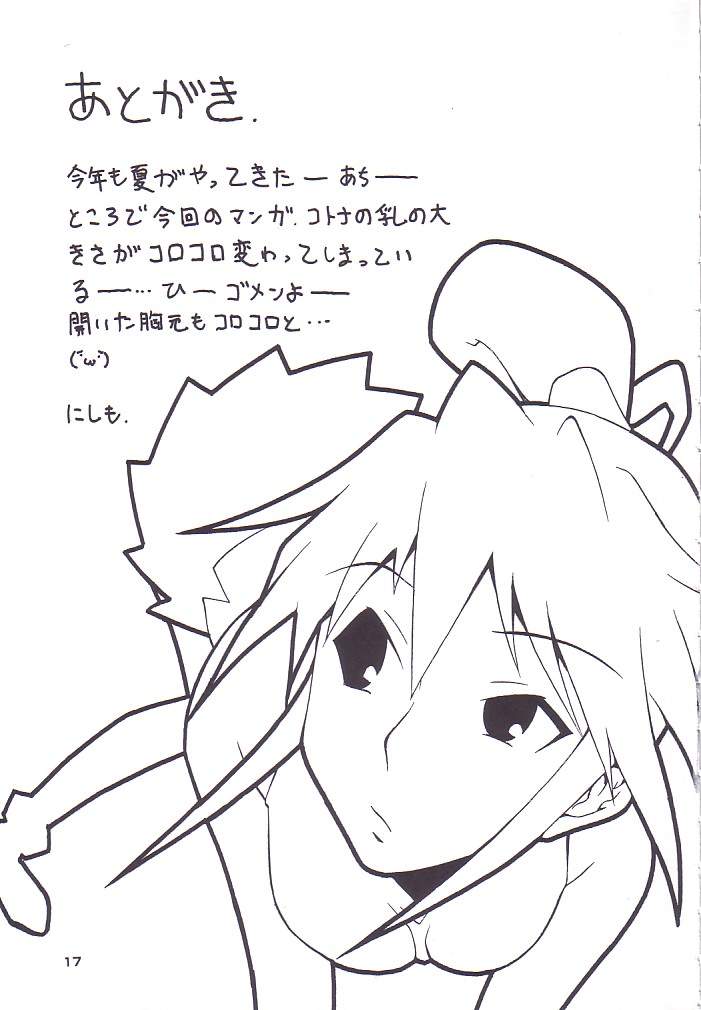 あとがき.
今年も夏がやってきたー あちー
ところで今回のマンガ. コトナの乳の大
きさがコロコロ変わってしまってい
るー… ひー ゴメンよー
開いた胸元もコロコロと…
(ﾞωﾞ)
にしも.
17